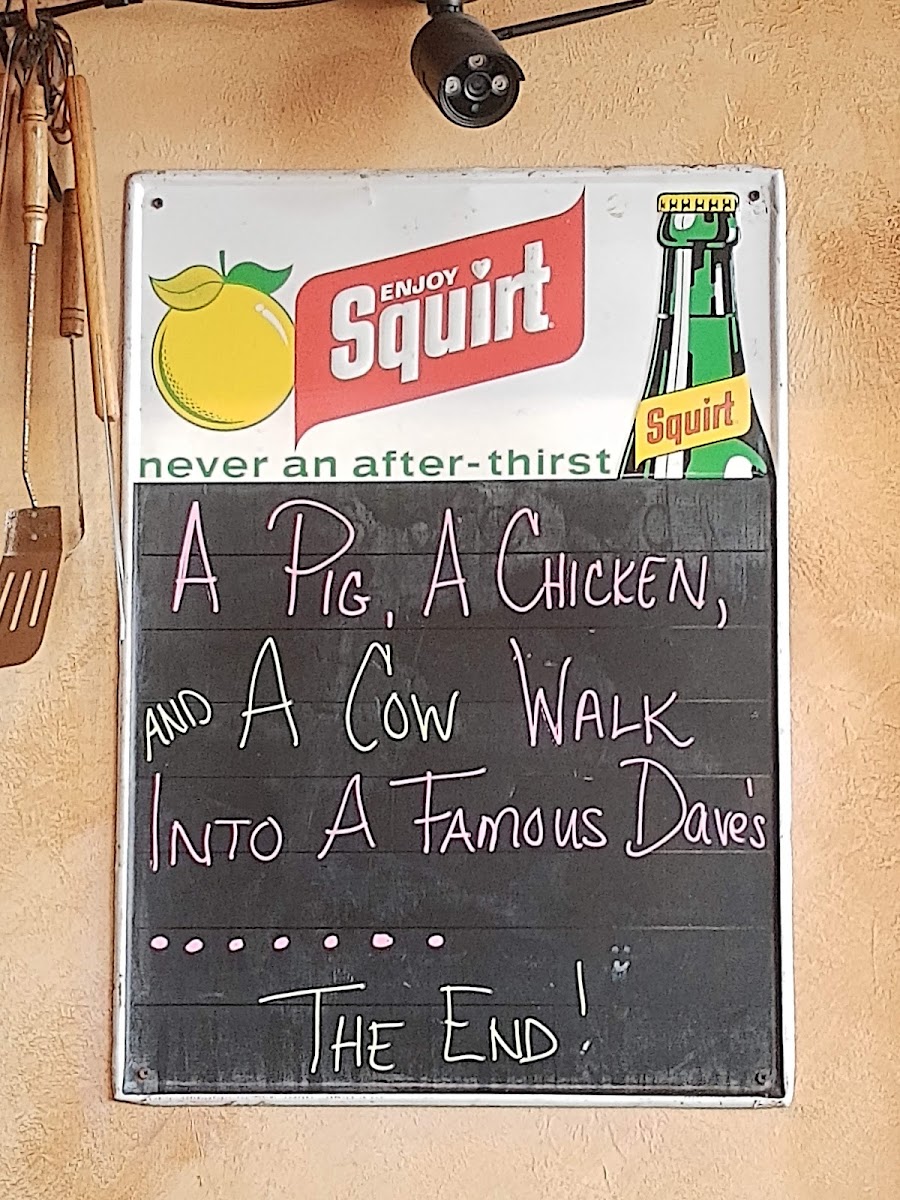 ENJOY
Squirt
Squirt
never an after-thirst
A PIG, A CHICKEN,
AND A COW WALK
INTO A FAMOUS Dave's
.......
THE END!